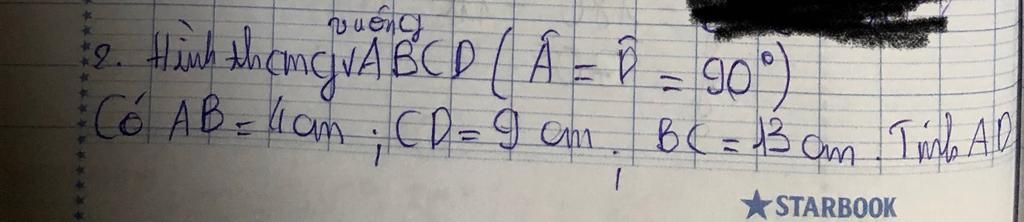 vuông
2. Hình thang ABCD ( Â = D̂ = 90°)
Có AB = 4 cm ; CD = 9 cm ; BC = 13 cm. Tính AD
★STARBOOK